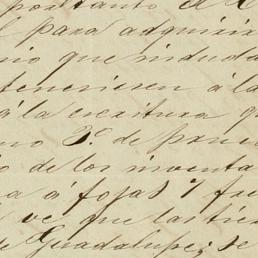 portanto el
para adquirir
que induda
tenecieren á la
á la escritura q
de
o de los inventa
a á fojas 7 fre
ve que las tier
de Guadalupe; se